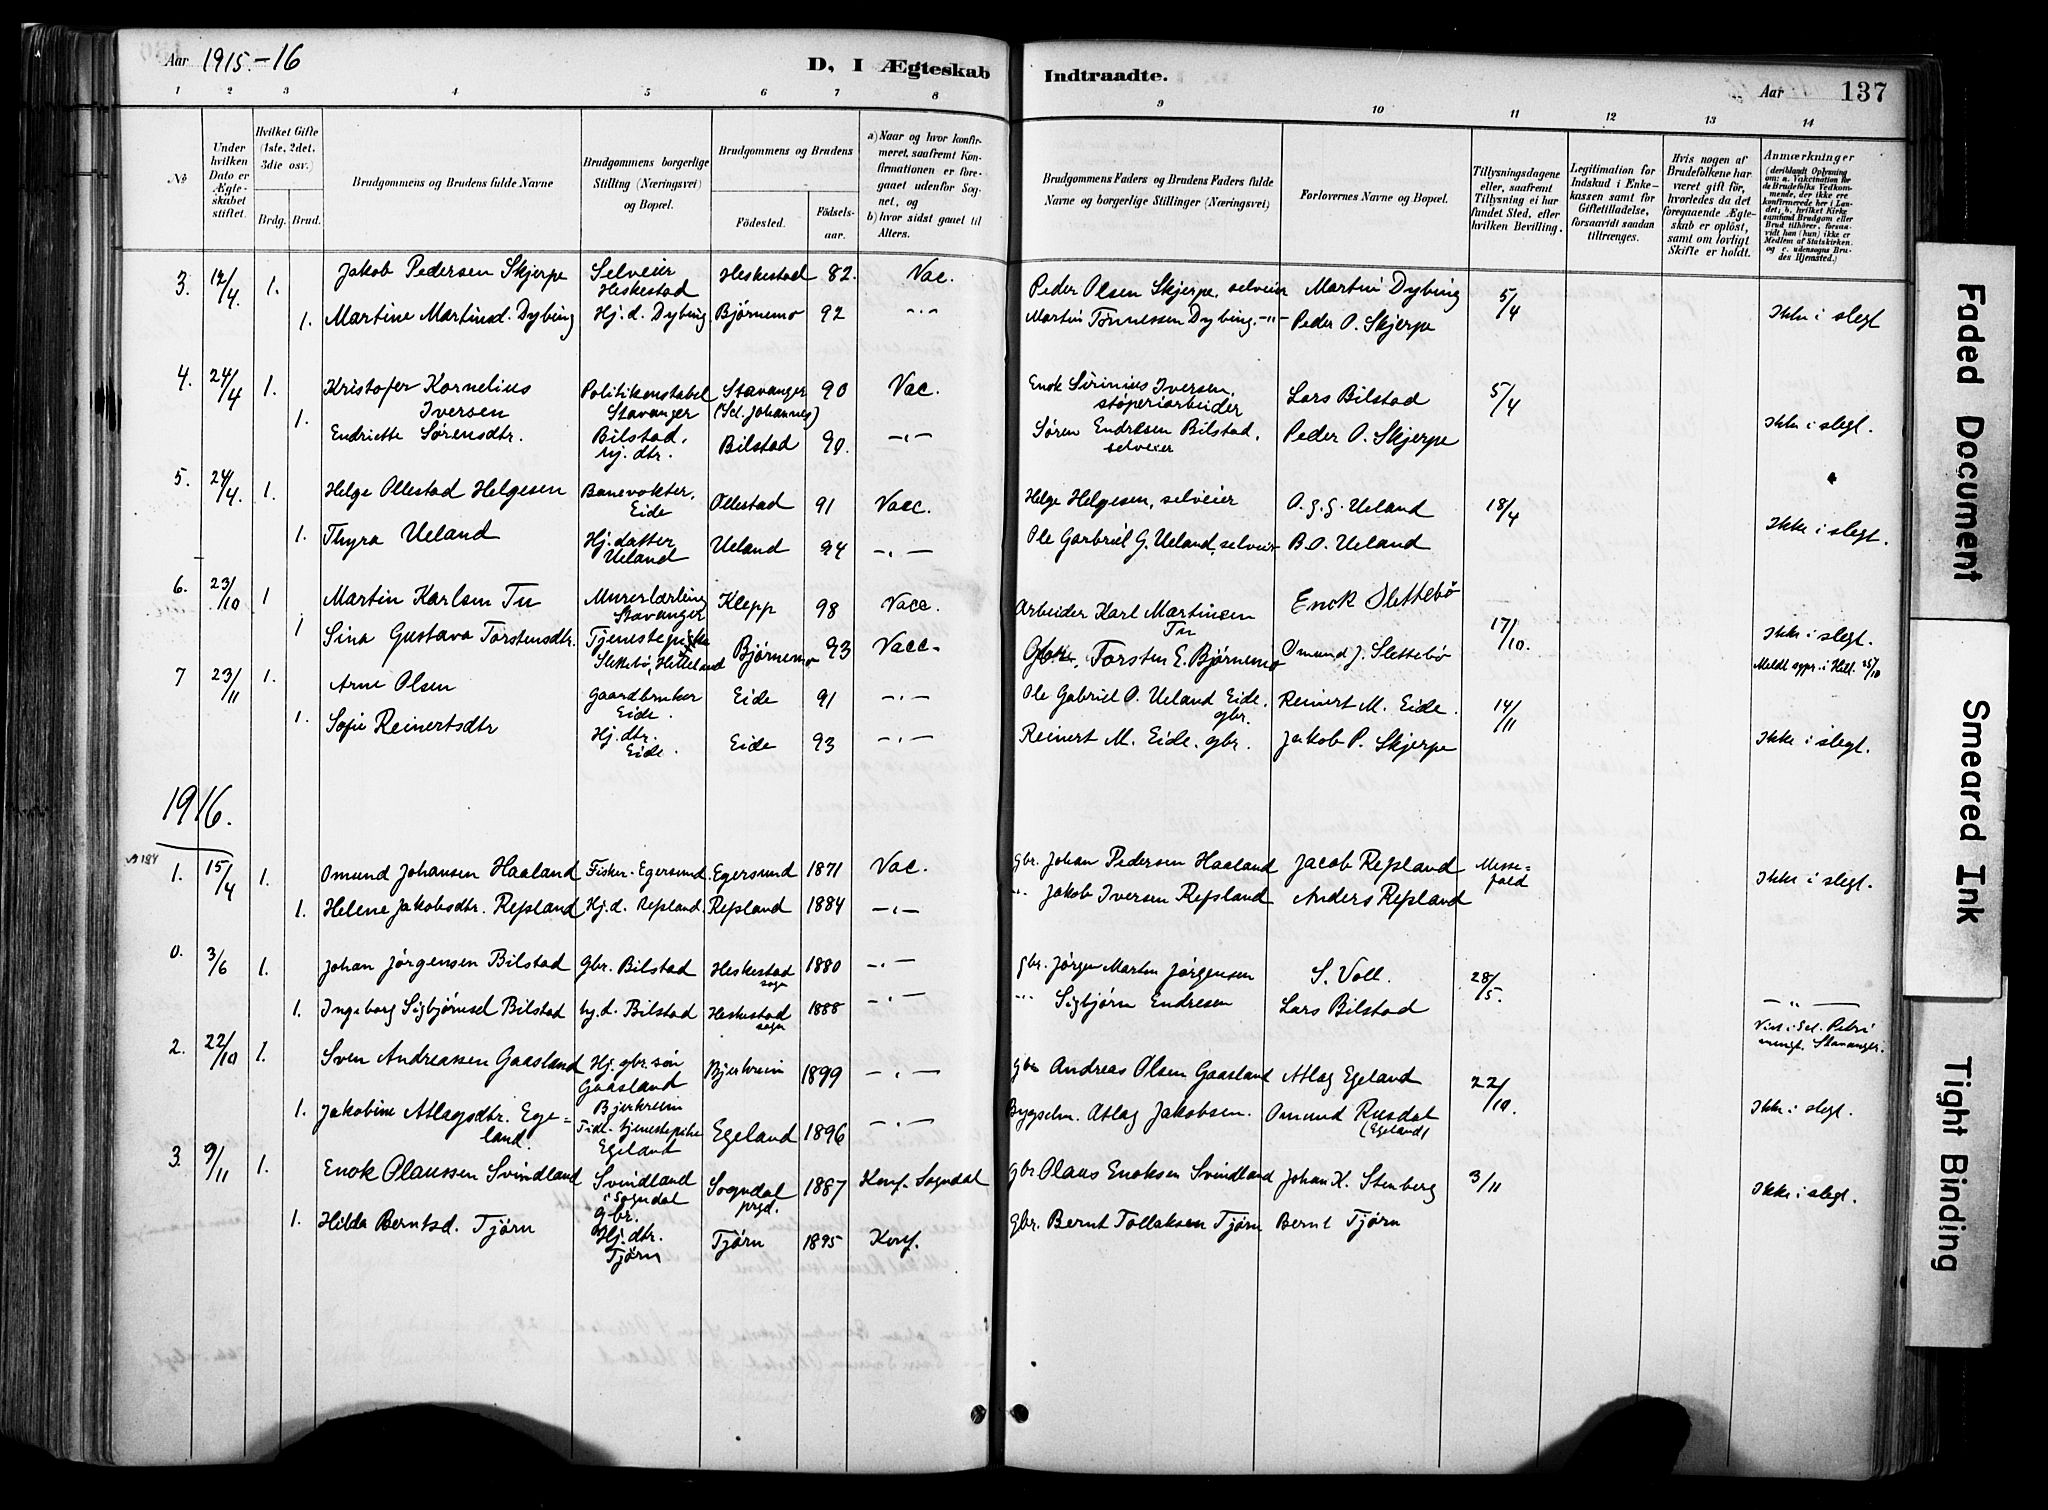 Aar 1915.-16
D, I Ægteskab Indtraadte.
Aar 137
1 2 3 4 5 6 7 8 9 10 11 12 13 14
№
Under hvilken Dato er Ægteskabet stiftet.
Hvilket Gifte (1ste, 2det, 3die osv.)
Brdg. Brud.
Brudgommens og Brudens fulde Navne
Brudgommens borgerlige Stilling (Næringsvei) og Bopæl.
Brudgommens og Brudens
Födested. Födselsaar.
a) Naar og hvor konfirmeret, saafremt Konfirmationen er foregaaet udenfor Sognet, og
b) hvor sidst gaaet til Alters.
Brudgommens Faders og Brudens Faders fulde Navne og borgerlige Stillinger (Næringsvei)
Forlovernes Navne og Bopæl.
Tillysningsdagene eller, saafremt Tillysning ei har fundet Sted, efter hvilken Bevilling.
Legitimation for Indskud i Enkekassen samt for Giftetilladelse, forsaavidt saadan tiltrænges.
Hvis nogen af Brudefolkene har været gift för, hvorledes da det foregaaende Ægteskab er oplöst, samt om lovligt Skifte er holdt.
Anmærkninger (deriblandt Oplysning om: a. Vakcination for de Brudefolks Vedkommende, der ikke ere konfirmerede her i Landet; b. hvilken Kirke samtlige Brudgom eller Brud tilhörer, forsaavidt han (hun) ikke er Medlem af Statskirken, og c. udensogns Brudes Hjemsted.)
3. 12/4. 1. Jakob Pedersen Skjerpe Selveier Heskestad Heskestad 82. Vac. Peder Olsen Skjerpe, selveier Martin Dybing 5/4
1. Martine Martinsd. Dybing Hj. d. Dybing Bjørnemo 92 -"- Martin Tønnessen Dybing. -"- Peder O. Skjerpe Ikke i slegt
4. 24/4 1. Kristofer Kornelius Iversen Politikonstabel Stavanger Stavanger (Sct. Johannes) 90 Vac. Enok Sirinius Iversen, støperiarbeider Lars Bilstad 5/4
1. Endriette Sørensdtr. Bilstad, hj. dtr. Bilstad 90. -"- Søren Endresen Bilstad, selveier Peder O. Skjerpe Ikke i slegt.
5. 24/4. 1. Helge Ollestad Helgesen Banevokter, Eide Ollestad 91 Vacc. Helge Helgesen, selveier O. G. G. Ueland 18/4
1. Thyra Ueland Hj. datter Ueland Ueland 94 -"- Ole Garbriel G. Ueland, selveier B. O. Ueland Ikke i slegt.
6. 23/10 1 Martin Karlsen Tu Murerlærling Stavanger Klepp 98 Vacc. Arbeider Karl Martinsen Tu Enok Slettebø 17/10.
1 Sina Gustava Torstensdtr. Tjenestepike Slettebø, Helleland Bjørnemo 93 Vacc. Gbr. Torsten E. Bjørnemo Omund J. Slettebø Ikke i slegt.
Meldt sgpr. i Hell. 25/10
7 23/11 1. Arne Olsen Gaardbruker Eide. Eide 91 -"- Ole Gabriel O. Ueland Eide, gbr. Reinert M. Eide. 14/11
1. Sofie Reinertsdtr Hj. dtr. Eide. Eide 93 -"- Reinert M. Eide. gbr. Jakob P. Skjerpe Ikke i slegt.
1916.
1. 15/4 1. Omund Johansen Haaland Fisker. Egersund. Egersund 1871 Vac. gbr. Johan Pedersen Haaland Jacob Refsland Messefald
1. Helene Jakobsdtr. Refsland Hj. d. Refsland. Refsland 1884 -"- " Jakob Iversen Refsland Anders Refsland Ikke i slegt.
0. 3/6 1. Johan Jørgensen Bilstad Gbr. Bilstad Heskestad sogn 1880 -"- gbr. Jørgen Martin Jørgensen S. Voll. 28/5.
1. Ingeborg Sigbjørnsd Bilstad hj. d. Bilstad Heskestad sogn 1888 -"- -"- Sigbjørn Endresen Lars Bilstad -"-
Viet i Sct. Petri menigt. Stavanger.
2. 22/10 1. Sven Andreassen Gaasland Hj. gbr. søn Gaasland Bjerkreim Bjerkreim 1899 -"- Gbr Andreas Olsen Gaasland Atlag Egeland 22/10.
1. Jakobine Atlagsdtr. Egeland. Tidl. tjenestepike Egeland Egeland 1896 -"- Bygselm. Atlag Jakobsen. Omund Rusdal (Egeland) Ikke i slegt.
3. 9/11 1. Enok Olaussen Svindland Svindland i Sogndal Gbr. Sogndal prgd. 1887 Konf. Sogndal gbr Olaus Enoksen Svindland Johan K. Stenberg 3/11
1. Hilda Berntsd. Tjørn Hj. dtr. Tjørn Tjørn 1895 Konf. gbr. Bernt Tollaksen Tjørn Bernt Tjørn Ikke i slegt.
Faded Document
Smeared Ink
Tight Binding